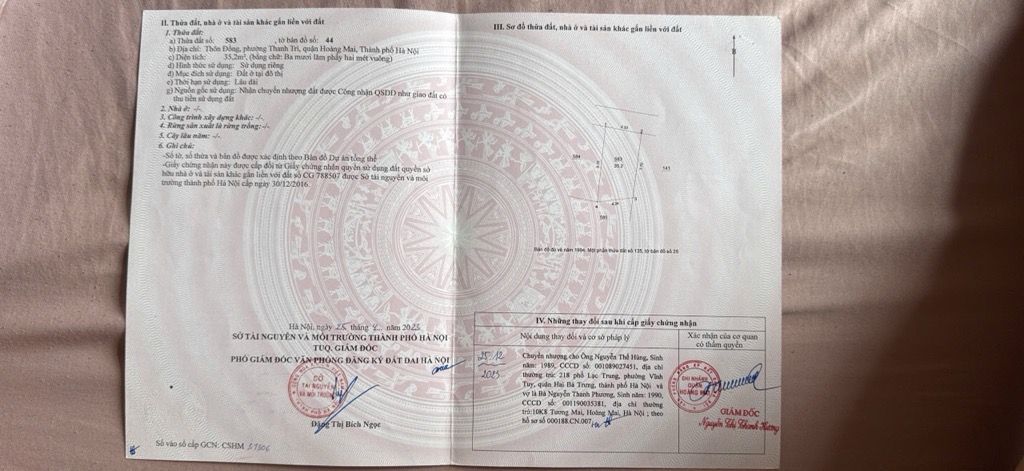 II. Thửa đất, nhà ở và tài sản khác gắn liền với đất
1. Thửa đất:
a) Thửa đất số: 583 , tờ bản đồ số: 44
b) Địa chỉ: Thôn Đồng, phường Thanh Trì, quận Hoàng Mai, Thành phố Hà Nội
c) Diện tích: 35,2m², (bằng chữ: Ba mươi lăm phẩy hai mét vuông)
d) Hình thức sử dụng: Sử dụng riêng
đ) Mục đích sử dụng: Đất ở tại đô thị
e) Thời hạn sử dụng: Lâu dài
g) Nguồn gốc sử dụng: Nhận chuyển nhượng đất được Công nhận QSDĐ như giao đất có
thu tiền sử dụng đất
2. Nhà ở: -/-
3. Công trình xây dựng khác: -/-
4. Rừng sản xuất là rừng trồng:-/-
5. Cây lâu năm: -/-
6. Ghi chú:
-Số tờ, số thửa và bản đồ được xác định theo Bản đồ Dự án tổng thể
-Giấy chứng nhận này được cấp đổi từ Giấy chứng nhận quyền sử dụng đất quyền sở
hữu nhà ở và tài sản khác gắn liền với đất số CG 788507 được Sở tài nguyên và môi
trường thành phố Hà Nội cấp ngày 30/12/2016.
Hà Nội, ngày 25 tháng 2025
SỞ TÀI NGUYÊN VÀ MÔI TRƯỜNG THÀNH PHỐ HÀ NỘI
TUQ. GIÁM ĐỐC
PHÓ GIÁM ĐỐC VĂN PHÒNG ĐĂNG KÝ ĐẤT ĐAI HÀ NỘI
SỞ
TÀI NGUYÊN
VÀ MÔI TRƯỜNG
Đặng Thị Bích Ngọc
Số vào sổ cấp GCN: CSHM
III. Sơ đồ thửa đất, nhà ở và tài sản khác gắn liền với đất
B
584
583
35.2
141
581
Bản đồ đo vẽ năm 1994. Một phần thửa đất số 135, tờ bản đồ số 25
IV. Những thay đổi sau khi cấp giấy chứng nhận
Nội dung thay đổi và cơ sở pháp lý
Xác nhận của cơ quan
có thẩm quyền
25.12
2025
Chuyển nhượng cho Ông Nguyễn Thế Hàng, Sinh
năm: 1989, CCCD số: 001089027451, địa chỉ
thường trú: 218 phố Lạc Trung, phường Vĩnh
Tuy, quận Hai Bà Trưng, thành phố Hà Nội và
vợ là Bà Nguyễn Thanh Phương, Sinh năm: 1990,
CCCD số: 001190035381, địa chỉ thường
trú:10K8 Tương Mai, Hoàng Mai, Hà Nội ; theo
hồ sơ số 000188.CN.007
CHI NHÁNH
QUẬN
HOÀNG MAI
GIÁM ĐỐC
Nguyễn Thị Thanh Hương